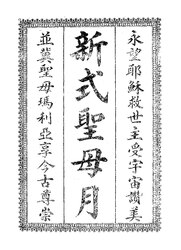 永望耶穌救世主受宇宙讚美
新式聖母月
並冀聖母瑪利亞享今古尊崇